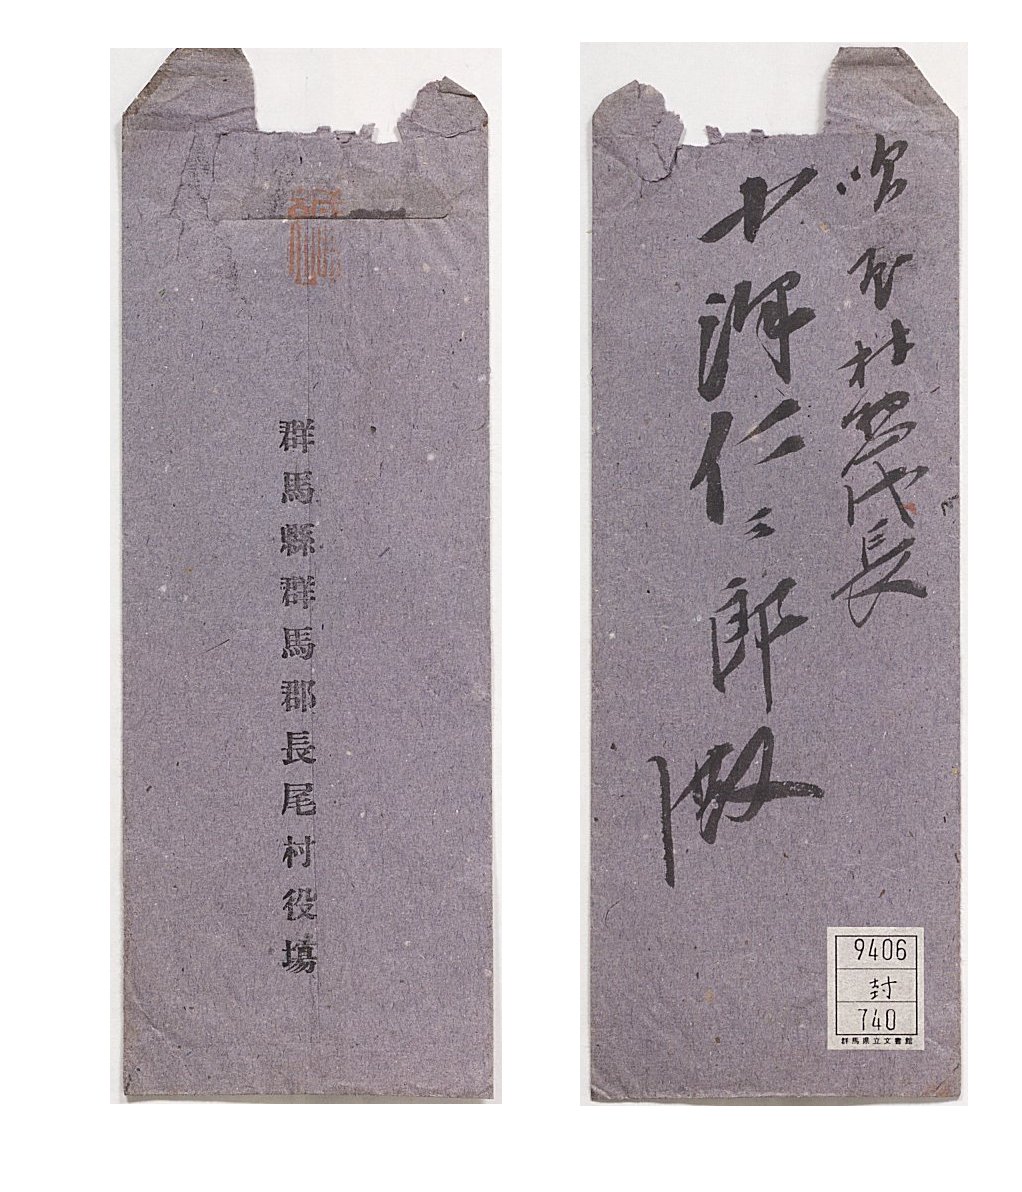 群馬縣群馬郡長尾村役塲
吹屋 惣代長
澤仁三郎殿
9406
封
740
群馬県立文書館